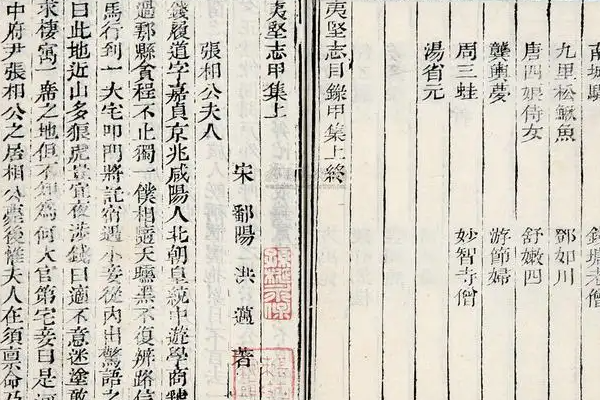 南城騾
九里松鰍魚 鄧如川
唐四娘侍女 舒嫩四
龔輿夢 游節婦
周三蛙 妙智寺僧
湯省元
夷堅志目錄甲集上終
夷堅志甲集上
宋 鄱陽 洪 邁 著
張相公夫人
錢履道字嘉貞京兆咸陽人北朝皇統中遊學商虢
過鄠縣貪程不止獨一僕相隨天曛黑不復辨路信
馬行到一大宅叩門將託宿遇小妾從內出驚語之
曰此地近山多狼虎豈宜夜涉錢曰適不意迷塗敢
求棲寓一席之地但不知為何大官第宅妾曰是河
中府尹張相公之居相公薨後惟夫人在須稟命乃